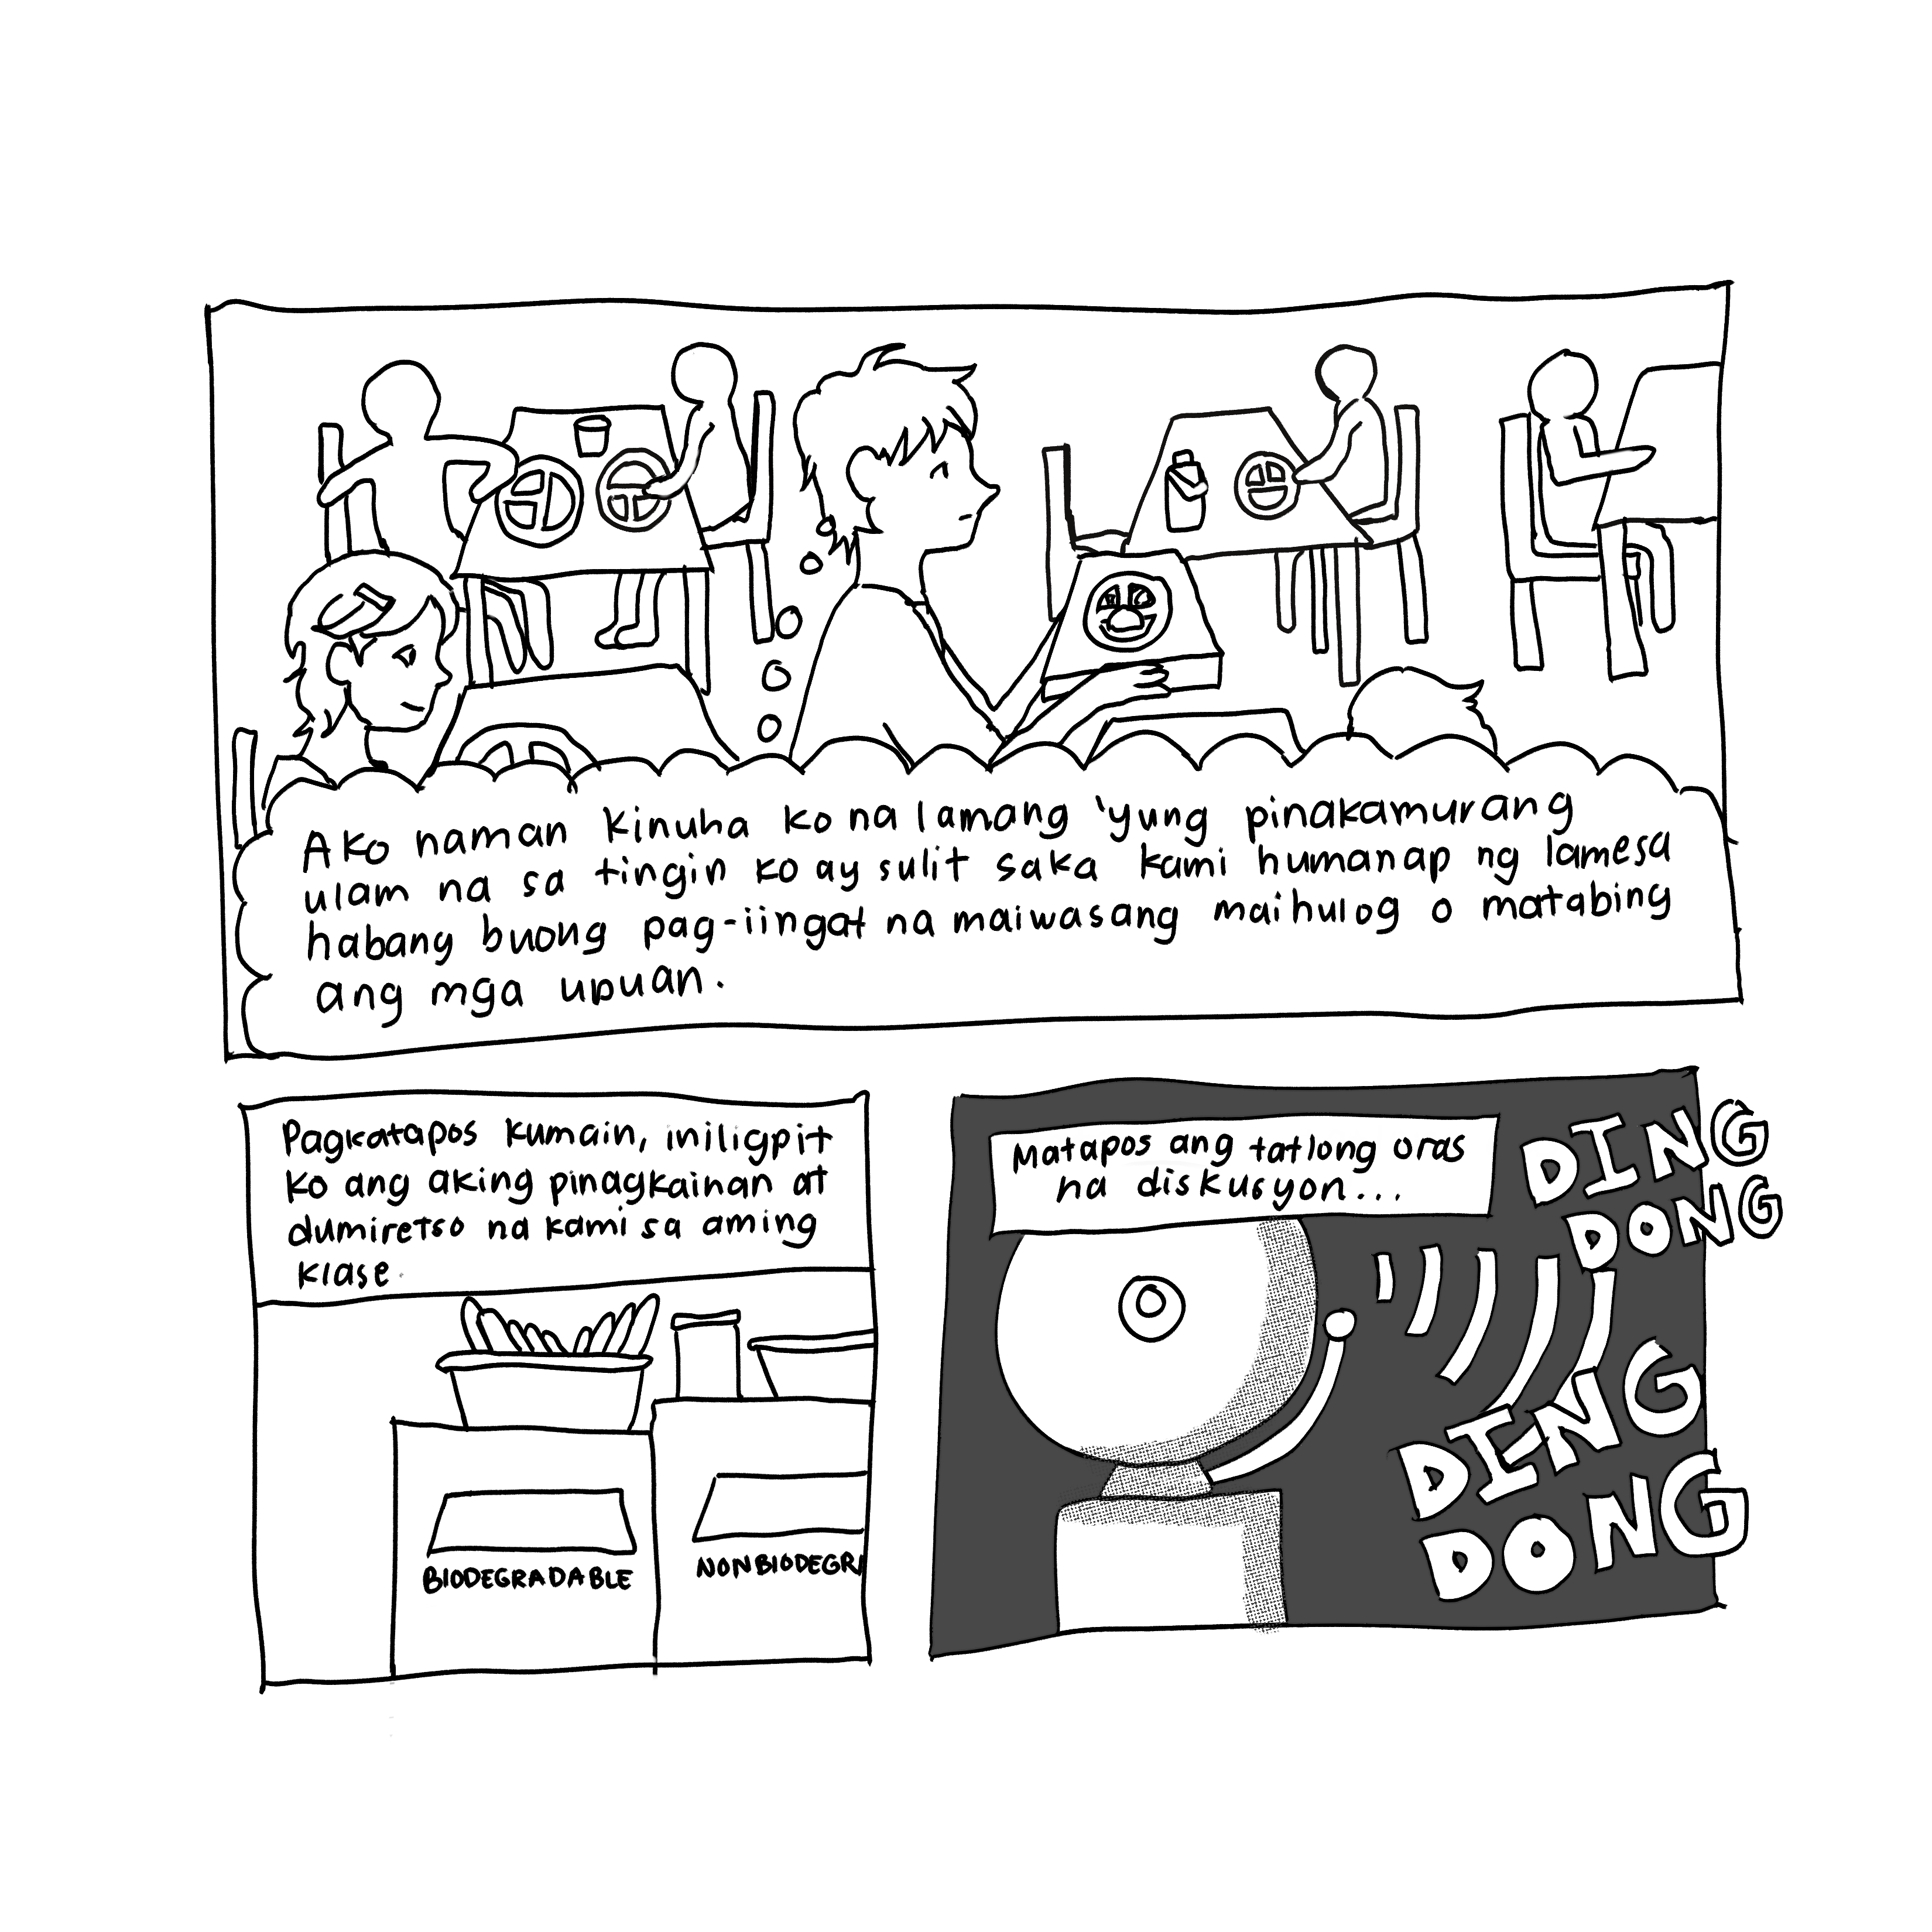 Ako naman kinuha ko na lamang 'yung pinakamurang
ulam na sa tingin ko ay sulit saka kami humanap ng lamesa
habang buong pag-iingat na maiwasang maihulog o matabing
ang mga upuan.
Pagkatapos kumain, iniligpit
ko ang aking pinagkainan at
dumiretso na kami sa aming
klase.
BIODEGRADABLE
NONBIODEGRA
Matapos ang tatlong oras
na diskusyon...
DING
DONG
DING
DONG